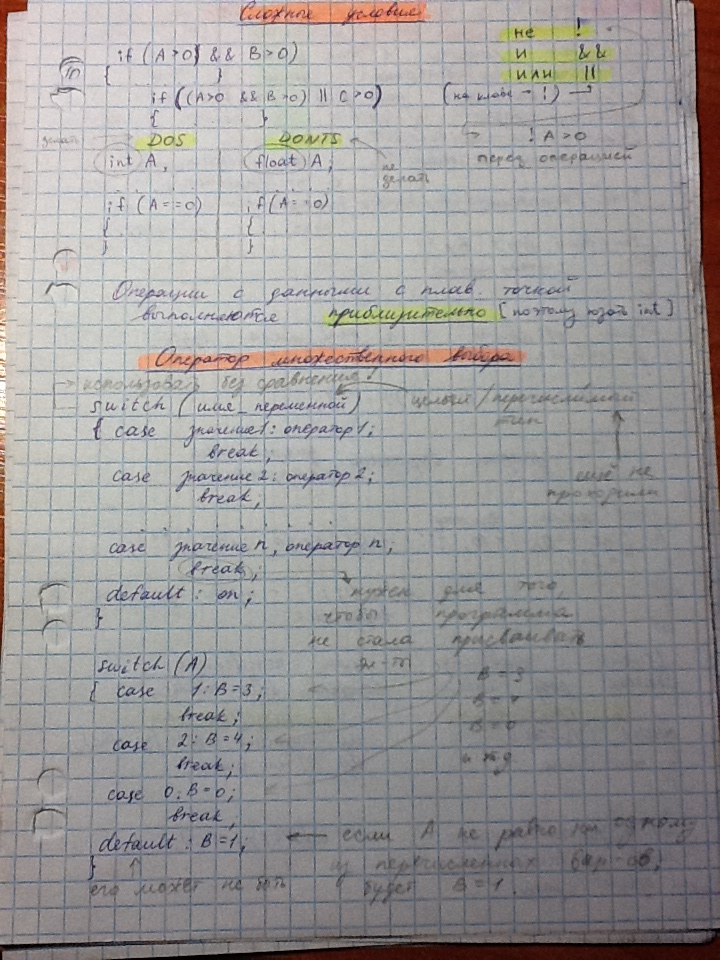 Сложные условия
не !
и &&
или ||
if (A>0) && B>0)
{ }
if ((A>0 && B>0) || C>0)
{ }
(на клаве → !)
! A>0
перед операцией
делать DOS DONTS
не делать
int A, float A;
if (A==0) if (A==0)
{ {
} }
Операции с данными с плав. точкой
выполняются приблизительно [поэтому юзать int]
Оператор множественного выбора
использовать без сравнения!
switch (имя_переменной) целый/перечислимый
тип
{ case значение1: оператор1;
break;
case значение2: оператор2;
break;
ещё не
проходили
. . . . . . .
case значение n, оператор n;
break;
default: оп;
}
нужен для того,
чтобы программа
не стала присваивать
эл-ты
B=3
B=0
и тд
switch (A)
{ case 1: B=3;
break;
case 2: B=4;
break;
case 0: B=0;
break,
default: B=1; ← если A не равно ни одному
из перечисленных вар-ов,
будет B=1.
}
его может не быть